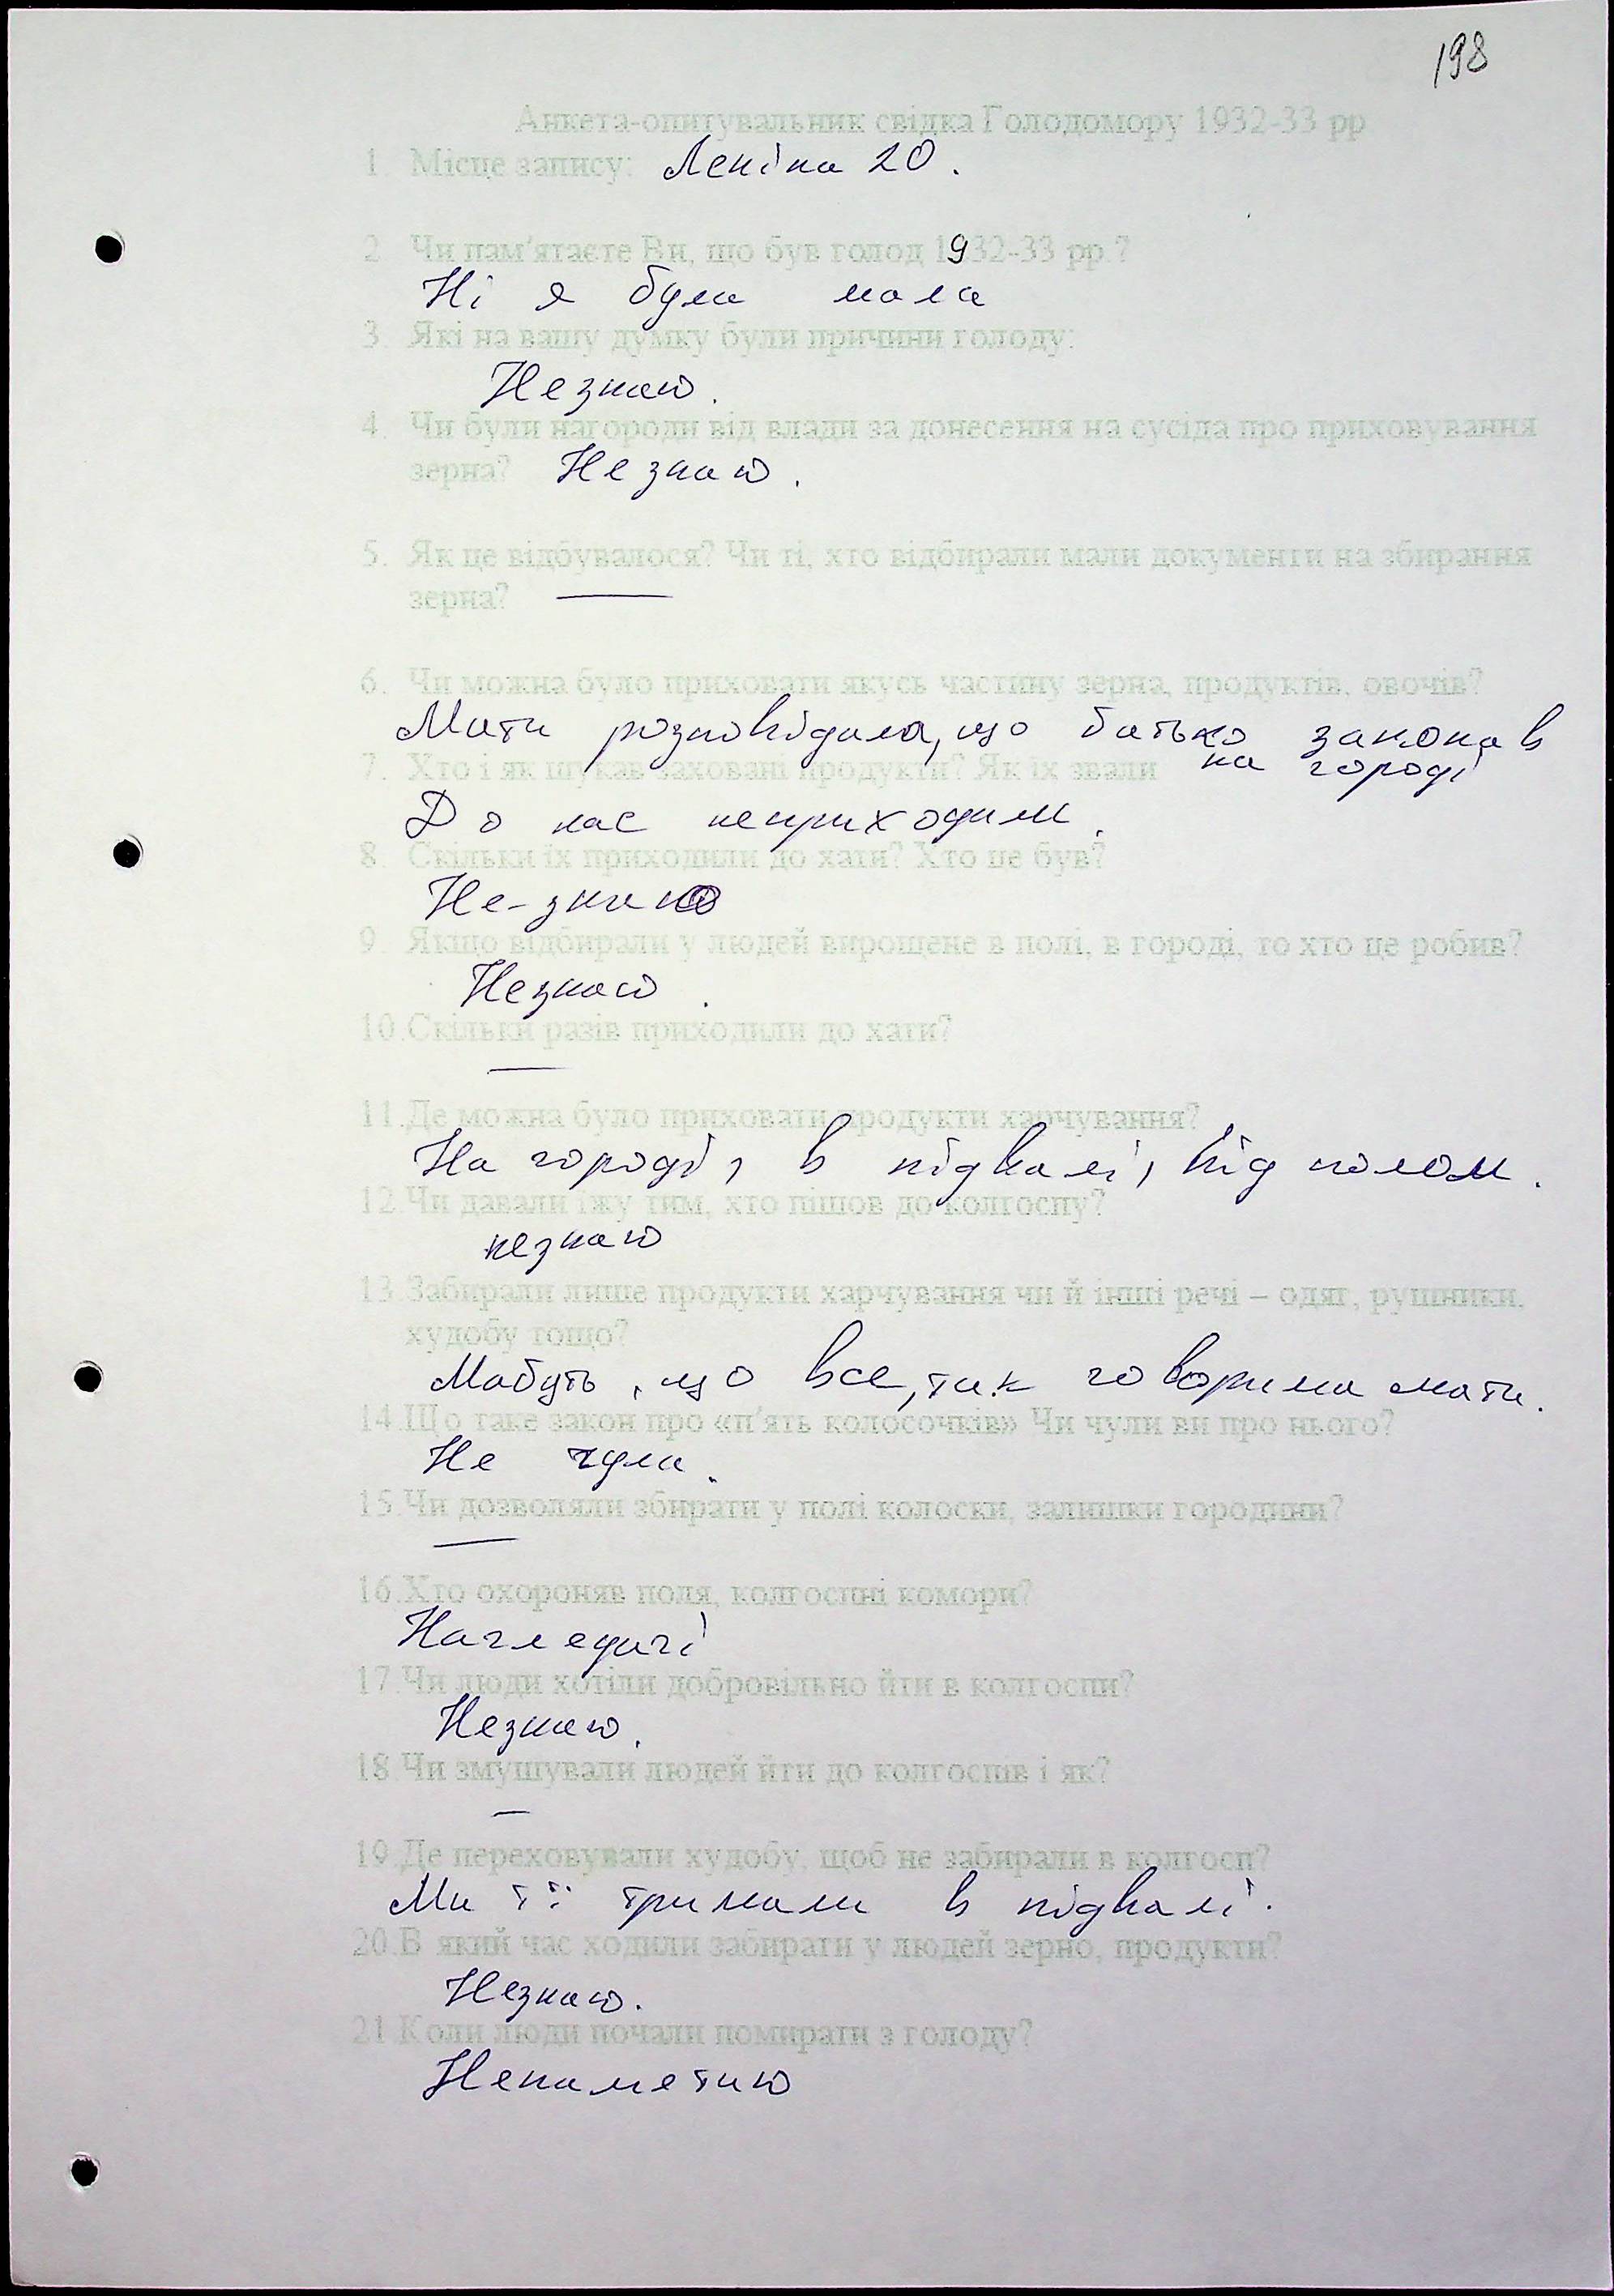 198
Анкета-опитувальник свідка Голодомору 1932-33 рр
1. Місце запису: Леніна 20.
2. Чи пам'ятаєте Ви, що був голод 1932-33 рр.?
Ні я була мала
3. Які на вашу думку були причини голоду:
Незнаю.
4. Чи були нагороди від влади за донесення на сусіда про приховування
зерна? Незнаю.
5. Як це відбувалося? Чи ті, хто відбирали мали документи на збирання
зерна? —
6. Чи можна було приховати якусь частину зерна, продуктів, овочів?
Мати розповідала, що батько закопав
на городі
7. Хто і як шукав заховані продукти? Як їх звали
До нас неприходили.
8. Скільки їх приходили до хати? Хто це був?
Не-знаю
9. Якщо відбирали у людей вирощене в полі, в городі, то хто це робив?
Незнаю.
10.Скільки разів приходили до хати?
—
11.Де можна було приховати продукти харчування?
На городі, в підвалі, під полом.
12.Чи давали їжу тим, хто пішов до колгоспу?
незнаю
13.Забирали лише продукти харчування чи й інші речі – одяг, рушники,
худобу тощо?
Мабуть, що все, так говорила мати.
14.Що таке закон про «п'ять колосочків» Чи чули ви про нього?
Не чула.
15.Чи дозволяли збирати у полі колоски, залишки городини?
—
16.Хто охороняв поля, колгоспні комори?
Нагледачі
17.Чи люди хотіли добровільно йти в колгоспи?
Незнаю.
18.Чи змушували людей йти до колгоспів і як?
—
19.Де переховували худобу, щоб не забирали в колгосп?
Ми її тримали в підвалі.
20.В який час ходили забирати у людей зерно, продукти?
Незнаю.
21.Коли люди почали помирати з голоду?
Непаметаю